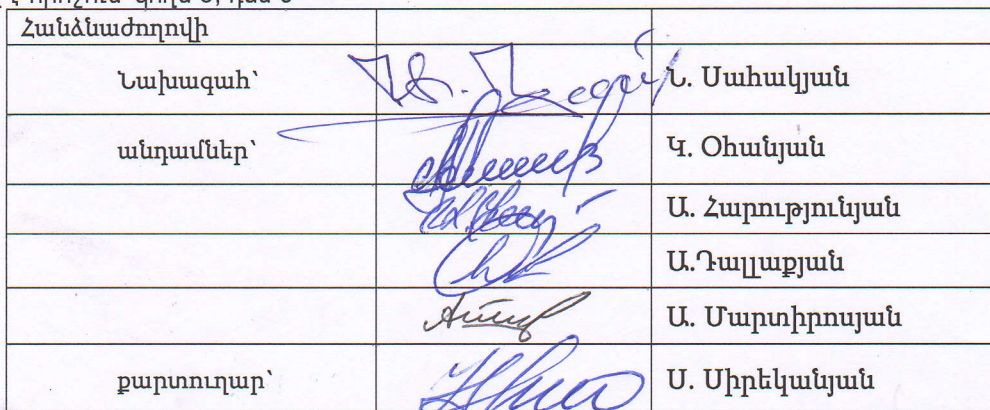 Հանձնաժողովի
Նախագահ՝ Ն. Սահակյան
անդամներ՝ Կ. Օհանյան
Ա. Հարությունյան
Ա.Դալլաքյան
Ա. Մարտիրոսյան
քարտուղար՝ Ս. Սիրեկանյան